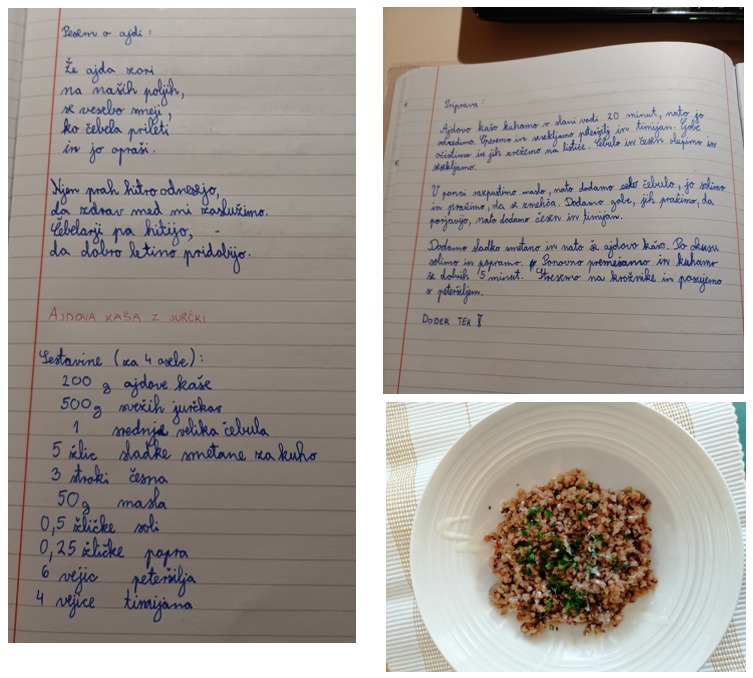 Pesem o ajdi:
Že ajda zori
na naših poljih,
se veselo smeji,
ko čebela prileti
in jo opraši.
Njen prah hitro odnesejo,
da zdrav med mi zaslužimo.
Čebelarji pa hitijo,
da dobro letino pridobijo.
AJDOVA KAŠA Z JURČKI
Sestavine (za 4 osebe):
200 g ajdove kaše
500 g svežih jurčkov
1 srednje velika čebula
5 žlic sladke smetane za kuho
3 stroki česna
50 g masla
0,5 žličke soli
0,25 žličke popra
6 vejic peteršilja
4 vejice timijana
Priprava:
Ajdovo kašo kuhamo v slani vodi 20 minut, nato jo
odcedimo. Operemo in sesekljamo peteršilj in timijan. Gobe
očistimo in jih zrežemo na lističe. Čebulo in česen olupimo in
sesekljamo.
V ponvi razpustimo maslo, nato dodamo čebulo, jo solimo
in pražimo, da se zmehča. Dodamo gobe, jih pražimo, da
porjavijo, nato dodamo česen in timijan.
Dodamo sladko smetano in nato še ajdovo kašo. Po okusu
solimo in popramo. Ponovno premešamo in kuhamo
še dobrih 5 minut. Stresemo na krožnike in posujemo
s peteršiljem.
DOBER TEK!